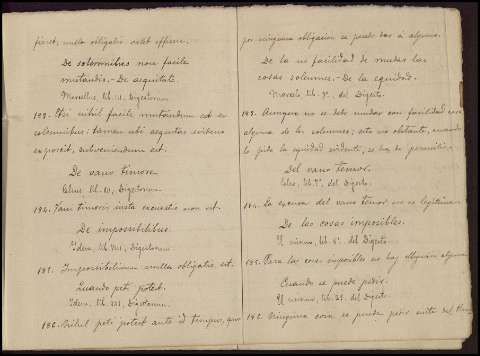 fieret; nulla obligatio valet efficere.
De solemnibus non facile
mutandis.- De aequitate.
Marcellus, lib. III, Digestorum.
183. Etsi nihil facile mutandum est ex
solemnibus: tamen ubi aequitas evidens
exposcit, subveniendum est.
De vano timore.
Celsus, lib. VII, Digestorum.
184. Vani timoris iusta excusatio non est.
De impossibilibus.
Idem, lib. VIII, Digestorum.
185. Impossibilium nulla obligatio est.
Quando peti potest.
Idem, lib. Digestorum.
186. Nihil peti potest ante id tempus, quo
por ninguna obligación se puede dar á alguno.
De la no facilidad de mudar las
cosas solemnes.- De la equidad.
Marcelo, lib. 3º, del Digesto.
183. Aunque no se debe mudar con facilidad cosa
alguna de las solemnes; esto no obstante, cuando
lo pida la equidad evidente, se ha de permitir.
Del vano temor.
Celso, lib. 7º, del Digesto.
184. La excusa del vano temor no es legítima.
De las cosas imposibles.
El mismo, lib. 8º, del Digesto.
185. Para las cosas imposibles no hay obligación alguna.
Cuando se puede pedir.
El mismo, lib. del Digesto.
186. Ninguna cosa se puede pedir antes del